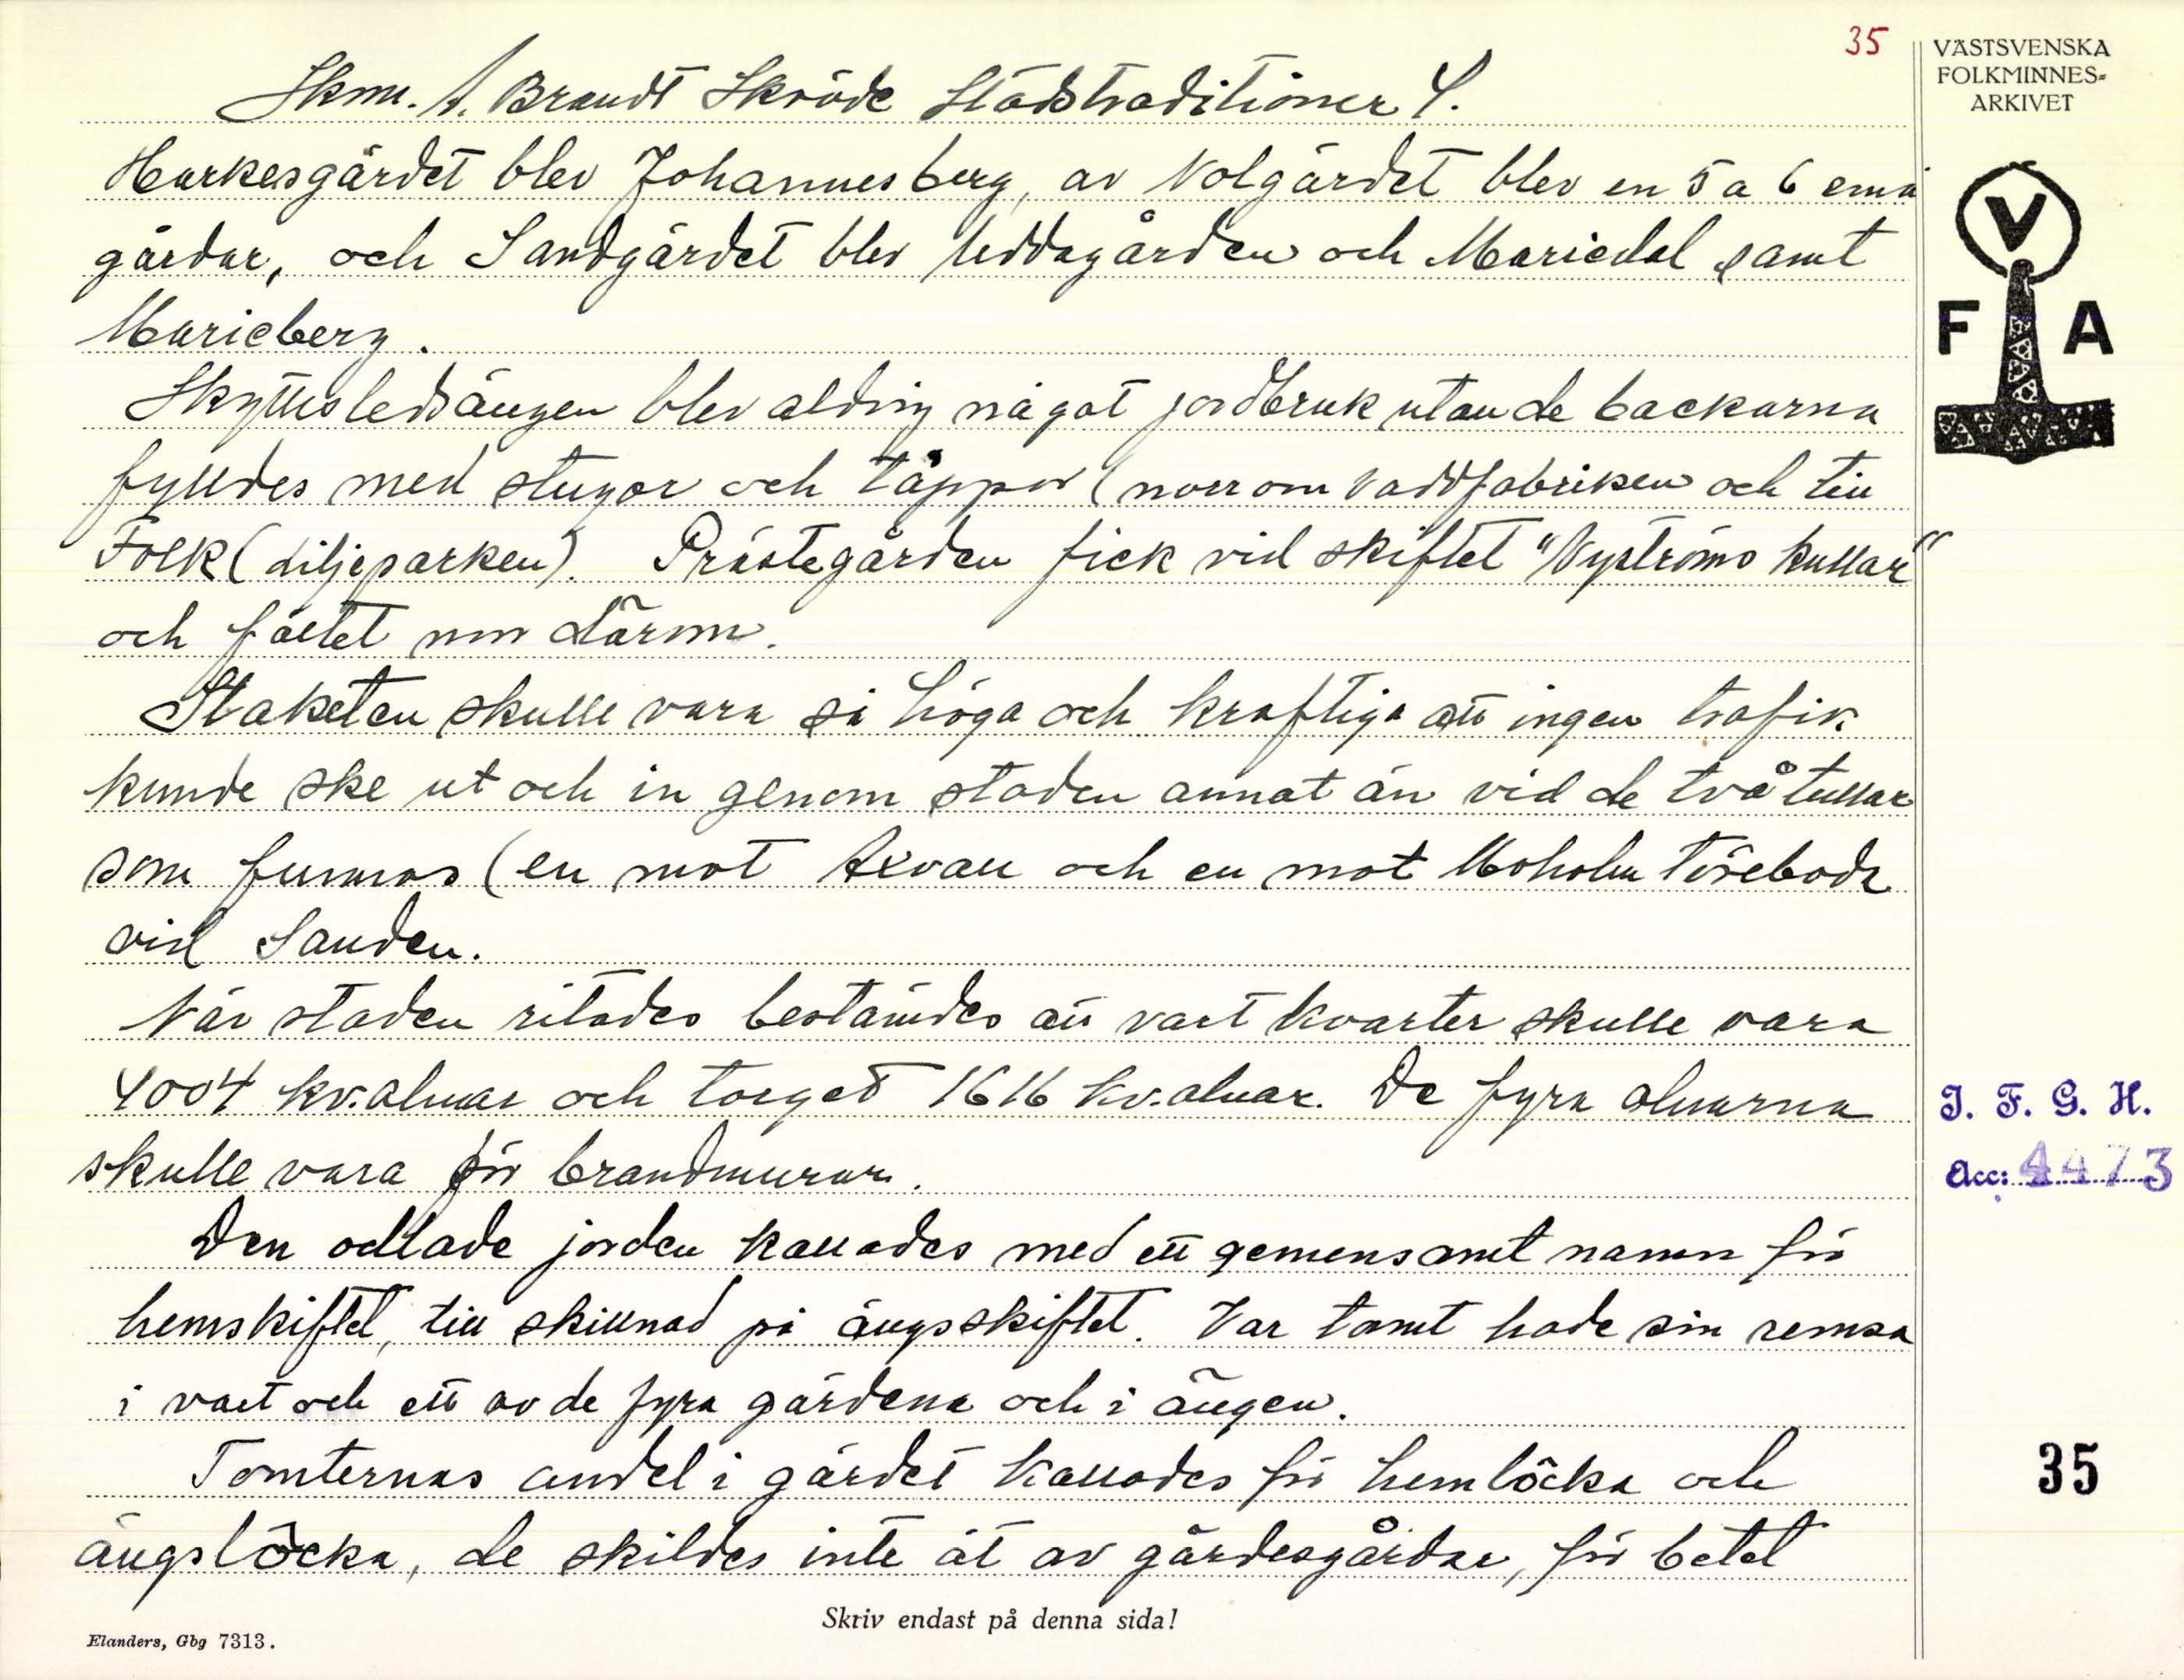 35
VÄSTSVENSKA
FOLKMINNES-
ARKIVET
Skm. A. Brandt Skövde Stadstraditioner 4.
Harkesgärdet blev Johannesberg, av Nolgärdet blev en 5 a 6 små
gårdar, och Sandgärdet blev Uddagården och Mariedal samt
Marieberg.
Skyttesledsängen blev aldrig något jordbruk utan de backarna
fylldes med stugor och täppor (norr om vaddfabriken och till
Folk (Liljeparken). Prästegården fick vid skiftet "Nyströms kullar"
och fältet norr därom.
Staketen skulle vara så höga och kraftiga att ingen trafik
kunde ske ut och in genom staden annat än vid de två tullar
som funnos (en mot Axvall och en mot Moholm Töreboda
vid Sanden.
När staden ritades bestämdes att vart kvarter skulle vara
4004 kv.alnar och torget 1616 kv.alnar. De fyra alnarna
skulle vara för brandmurar.
Den odlade jorden kallades med ett gemensamt namn för
hemskiftet, till skillnad på ängsskiftet. Var tomt hade sin remsa
i vart och ett av de fyra gärdena och i ängen.
Tomternas andel i gärdet kallades för hemlöcka och
ängslöcka, de skildes inte åt av gärdesgårdar, för betet
V
F A
I. F. G. H.
Acc: 4473
35
Skriv endast på denna sida!
Elanders, Gbg 7313.